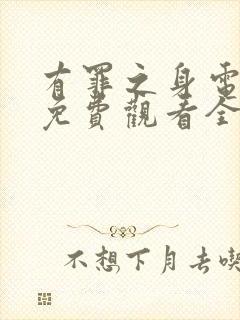 有罪之身電
免費觀看全
不想下月去喫